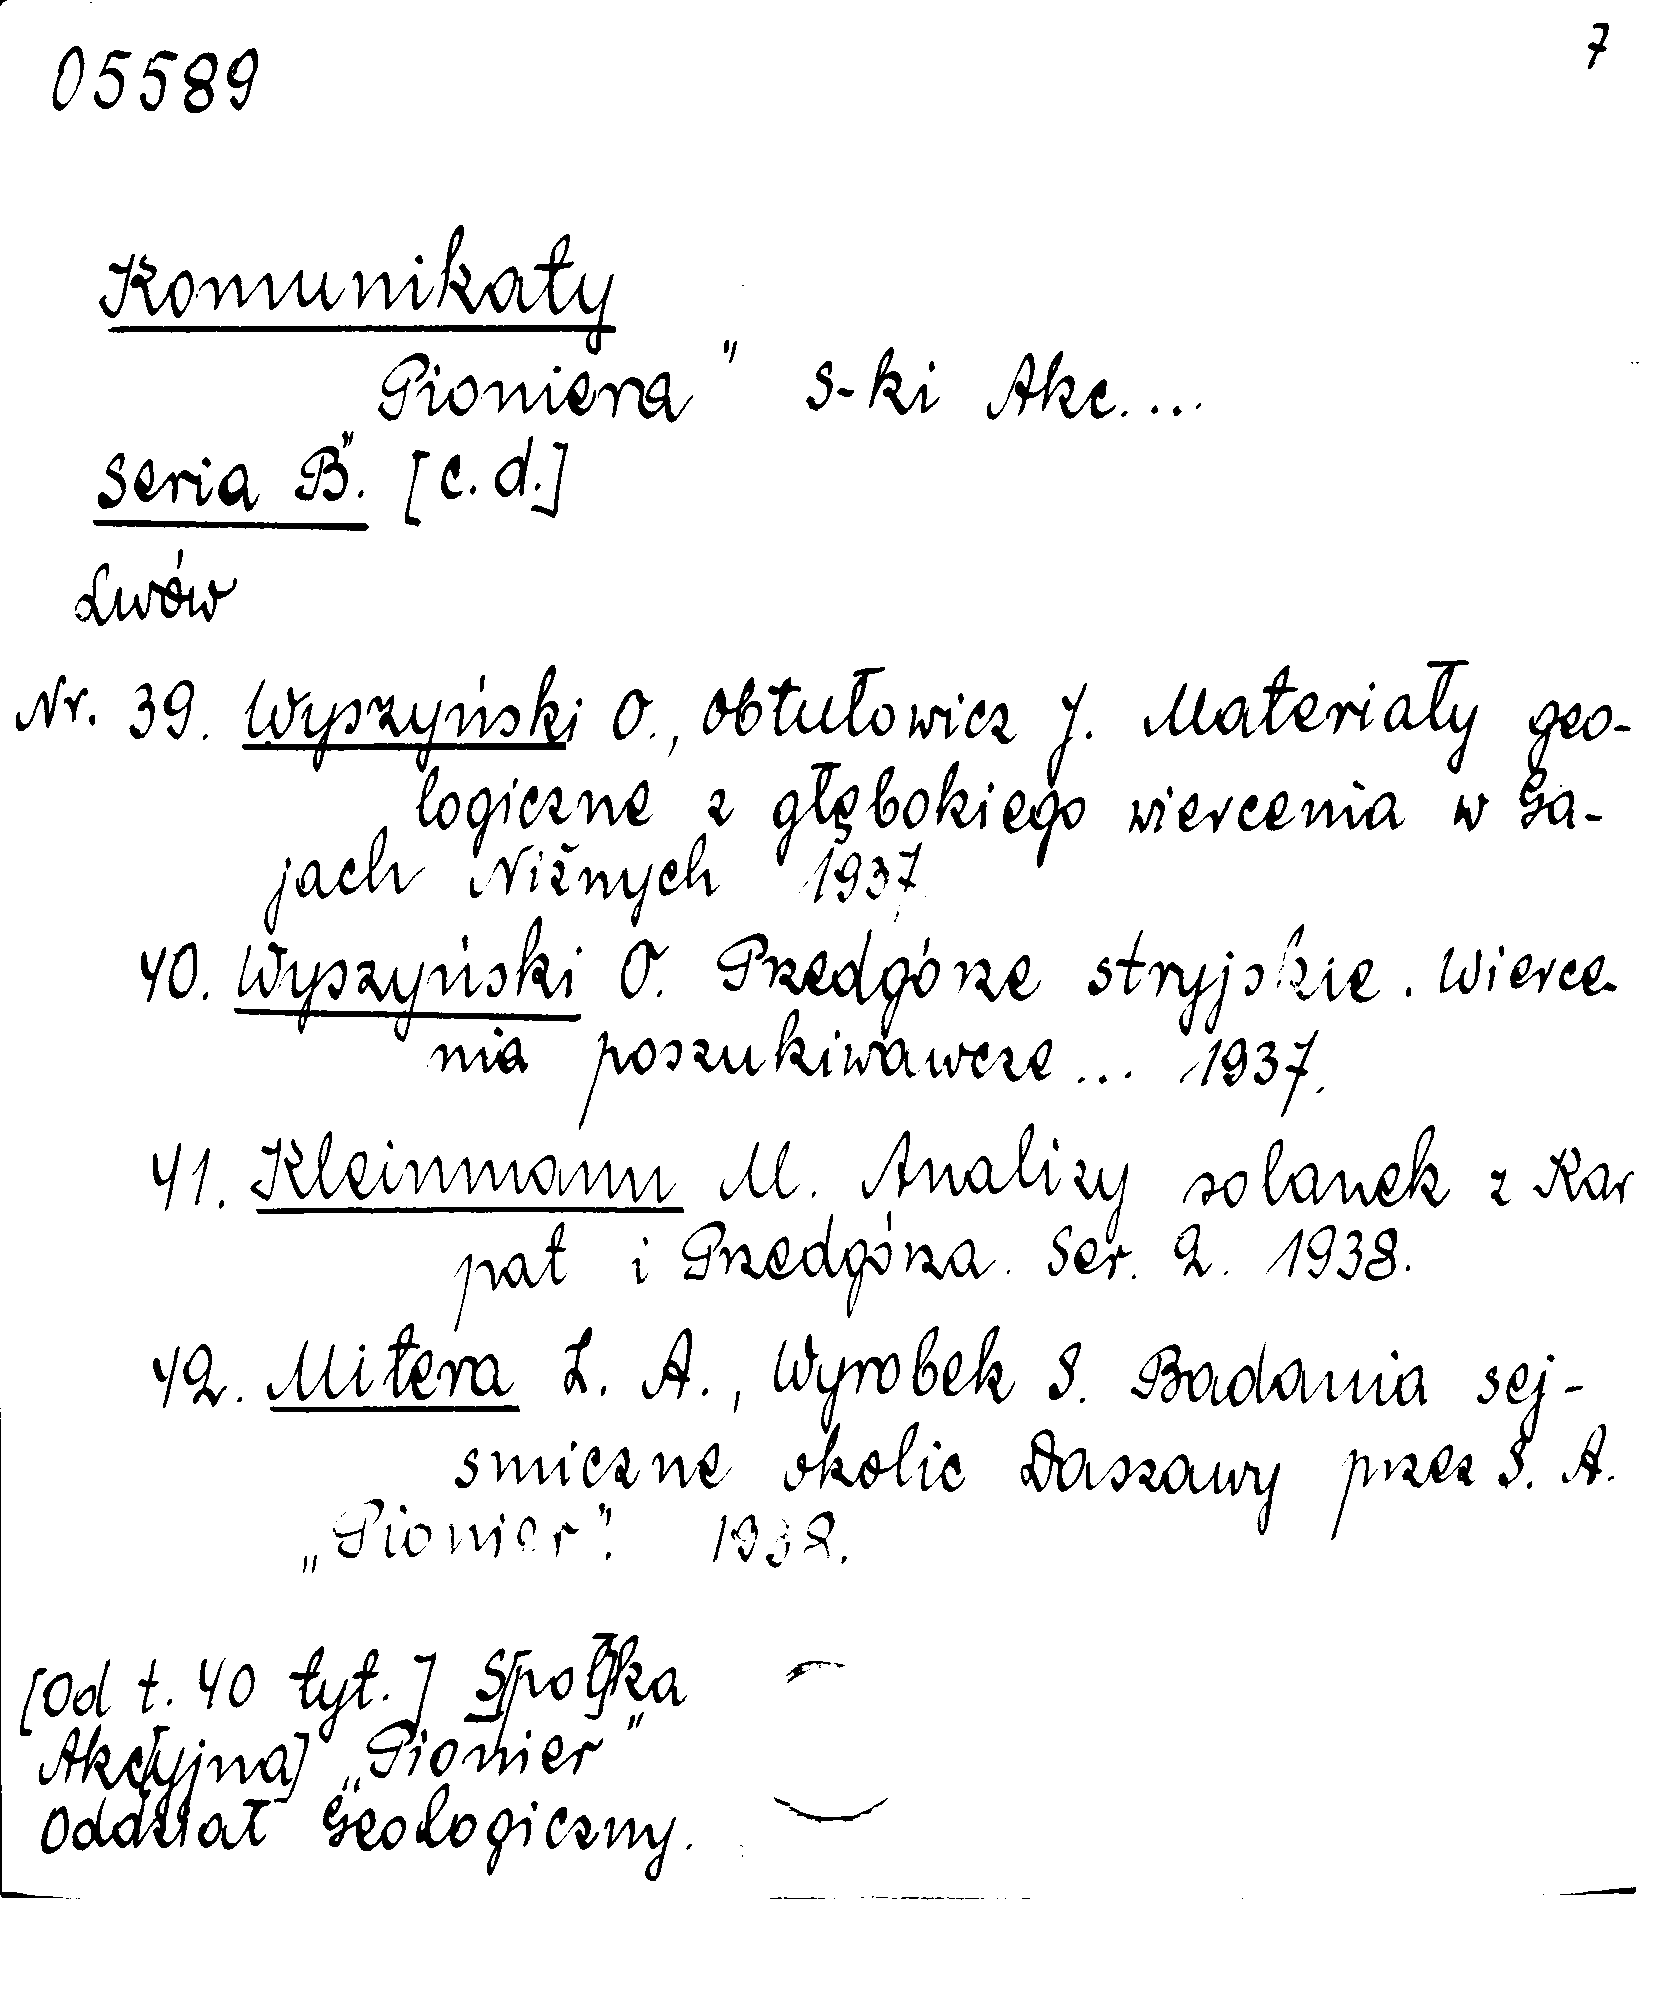 05589
7
Komunikaty
Pioniera" S-ki Akc....
Seria B". [c.d.]
Lwów
Nr. 39. Wyszyński O., Obtułowicz J. Materiały geo-
logiczne z głębokiego wiercenia w Ga-
jach Niżnych 1937
40. Wyszyński O. Przedgórze stryjskie. Wierce-
nia poszukiwawcze... 1937.
41. Kleinmann M. Analizy solanek z Kar
pat i Przedgórza. Ser. 2. 1938.
42. Mitera Z. A., Wyrobek S. Badania sej-
smiczne okolic Daszawy przez S. A.
„Pionier". 1938.
[Od t. 40 tyt.] S[połka
Akc[yjna] „Pionier"
Oddział Geologiczny.